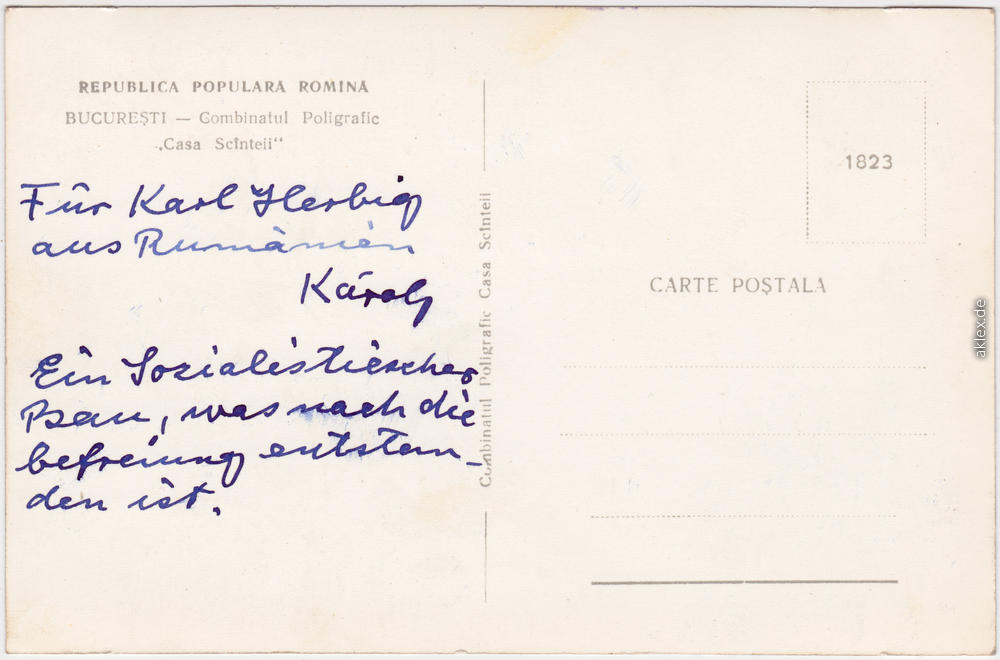 REPUBLICA POPULARĂ ROMÎNĂ
BUCUREȘTI — Combinatul Poligrafic
„Casa Scînteii“
Für Karl Herbig
aus Rumänien
Károly
Ein Sozialistiescher
Bau, was nach die
befreiung entstan-
den ist.
Combinatul Poligrafic Casa Scînteii
1823
CARTE POȘTALA
aklex.de